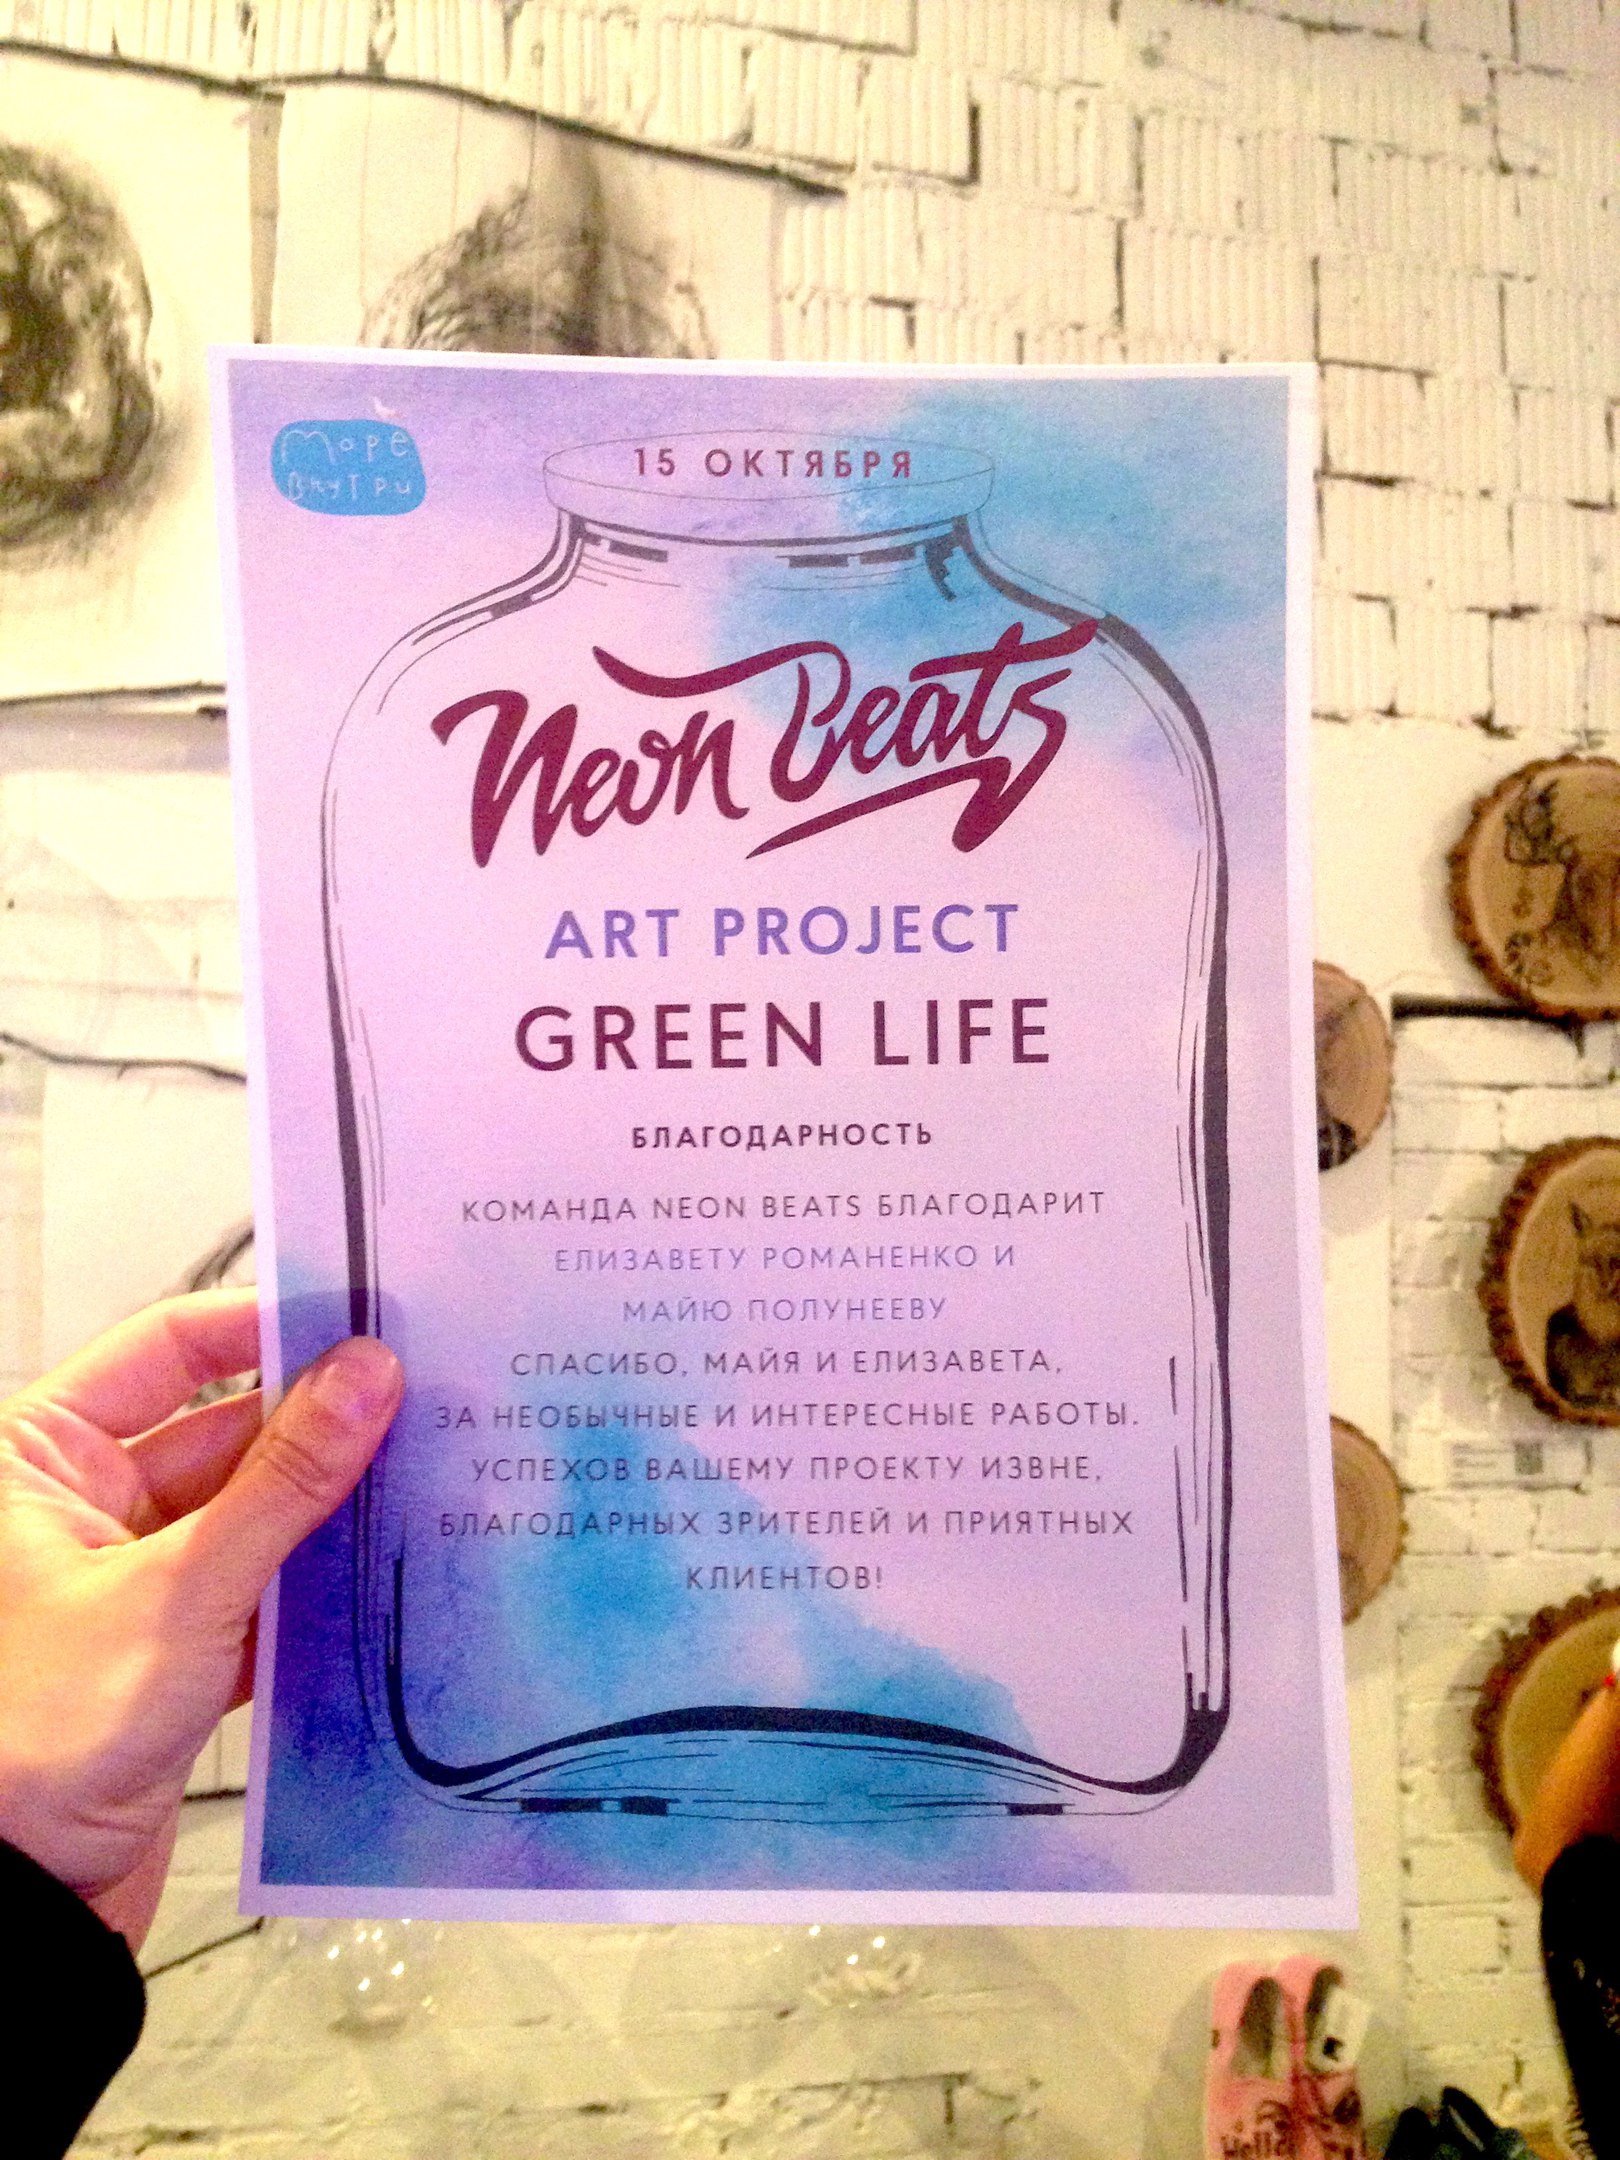 Море
внутри
15 ОКТЯБРЯ
Neon Beats
ART PROJECT
GREEN LIFE
БЛАГОДАРНОСТЬ
КОМАНДА NEON BEATS БЛАГОДАРИТ
ЕЛИЗАВЕТУ РОМАНЕНКО И
МАЙЮ ПОЛУНЕЕВУ
СПАСИБО, МАЙЯ И ЕЛИЗАВЕТА,
ЗА НЕОБЫЧНЫЕ И ИНТЕРЕСНЫЕ РАБОТЫ.
УСПЕХОВ ВАШЕМУ ПРОЕКТУ ИЗВНЕ,
БЛАГОДАРНЫХ ЗРИТЕЛЕЙ И ПРИЯТНЫХ
КЛИЕНТОВ!
Hello